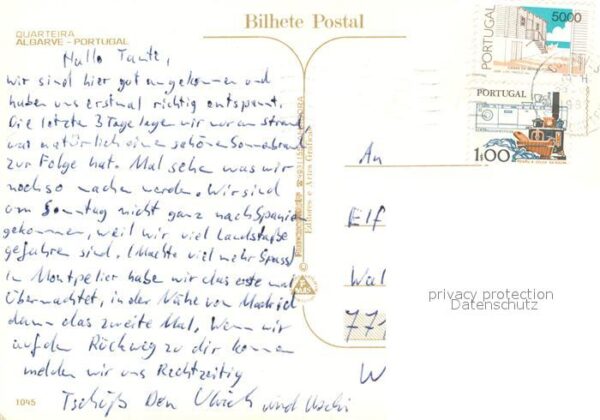 Bilhete Postal
QUARTEIRA
ALGARVE - PORTUGAL
Hallo Tante,
wir sind hier gut angekommen und
haben uns erstmal richtig entspannt.
Die letzte 3 Tage lagen wir nur am Strand
was natürlich eine schöne Sonnenbrand
zur Folge hat. Mal sehen was wir
noch so machen werden. Wir sind
am Sonntag nicht ganz nach Spanien
gekommen, weil wir viel Landstraße
gefahren sind. (Machte viel mehr Spass)
In Montpelier haben wir das erste mal
übernachtet, in der Nähe von Madrid
dann das zweite Mal. Wenn wir
auf dem Rückweg zu dir kommen
melden wir uns Rechtzeitig
Tschüß Dein Ulrich und Uschi
1045
Editores e Artes Gráficas
PORTUGAL
5000
PORTUGAL
1.00
An
Elf
Wal
771
W
privacy protection
Datenschutz